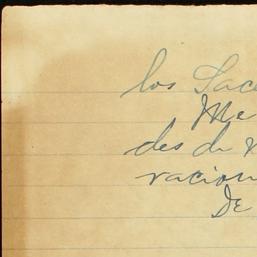 los Sace
Me
des de
racion
De